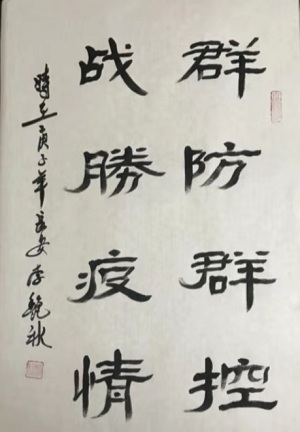 群防群控
战勝疫情
時在庚子年長安李曉秋